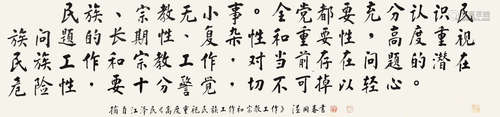 民族、宗教无小事。全党都要充分认识民
族问题的长期性、复杂性和重要性，高度重视
民族工作和宗教工作，对当前存在问题的潜在
危险性，要十分警觉，切不可掉以轻心。
摘自江泽民《高度重视民族工作和宗教工作》 书